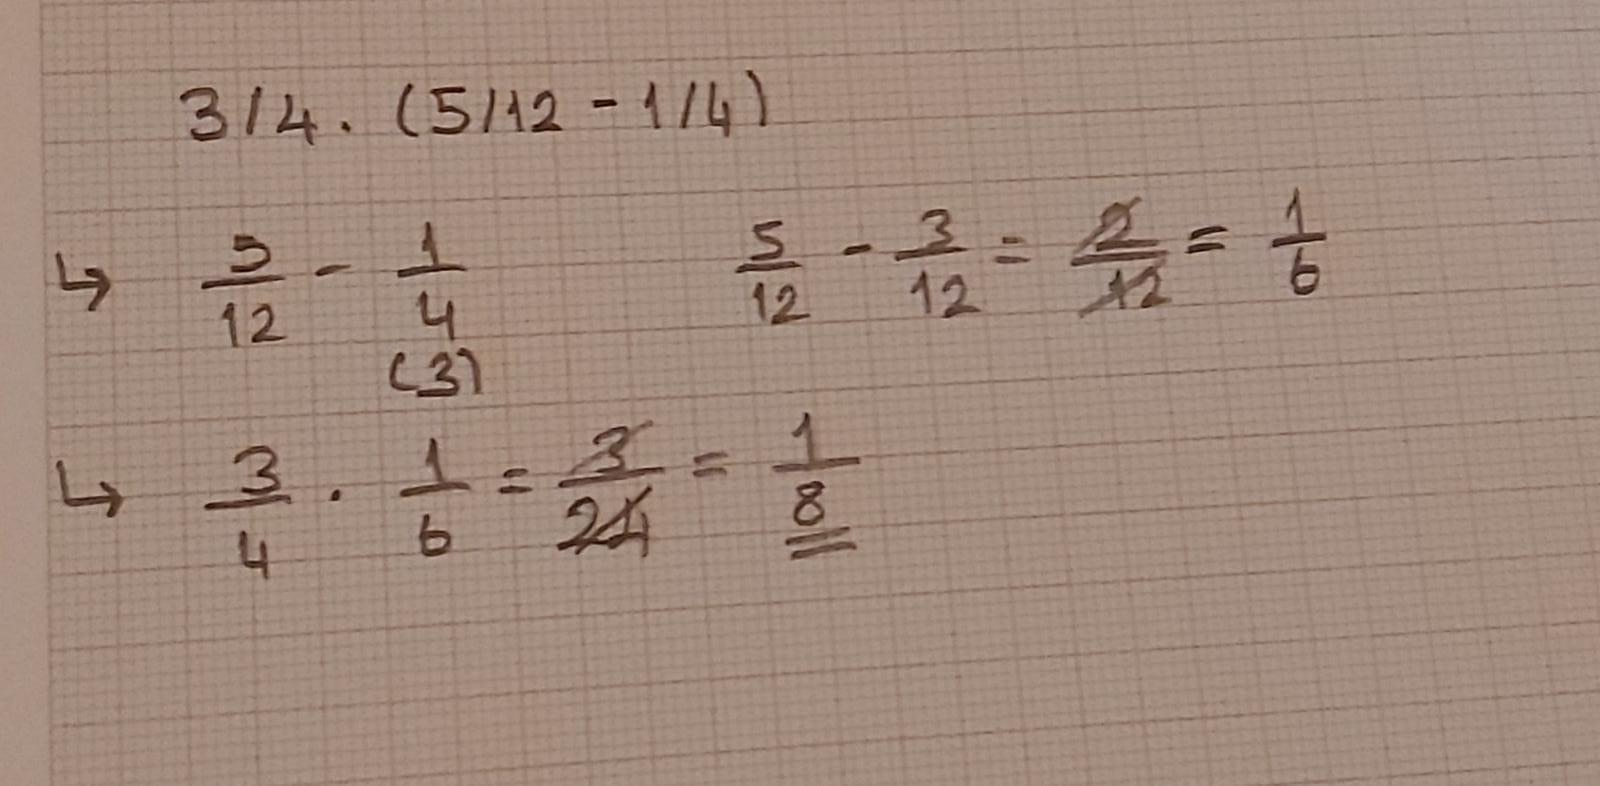 3/4 . (5/12 - 1/4)
↳ 5/12 - 1/4 (3) 5/12 - 3/12 = 2/12 = 1/6
↳ 3/4 . 1/6 = 3/24 = 1/8